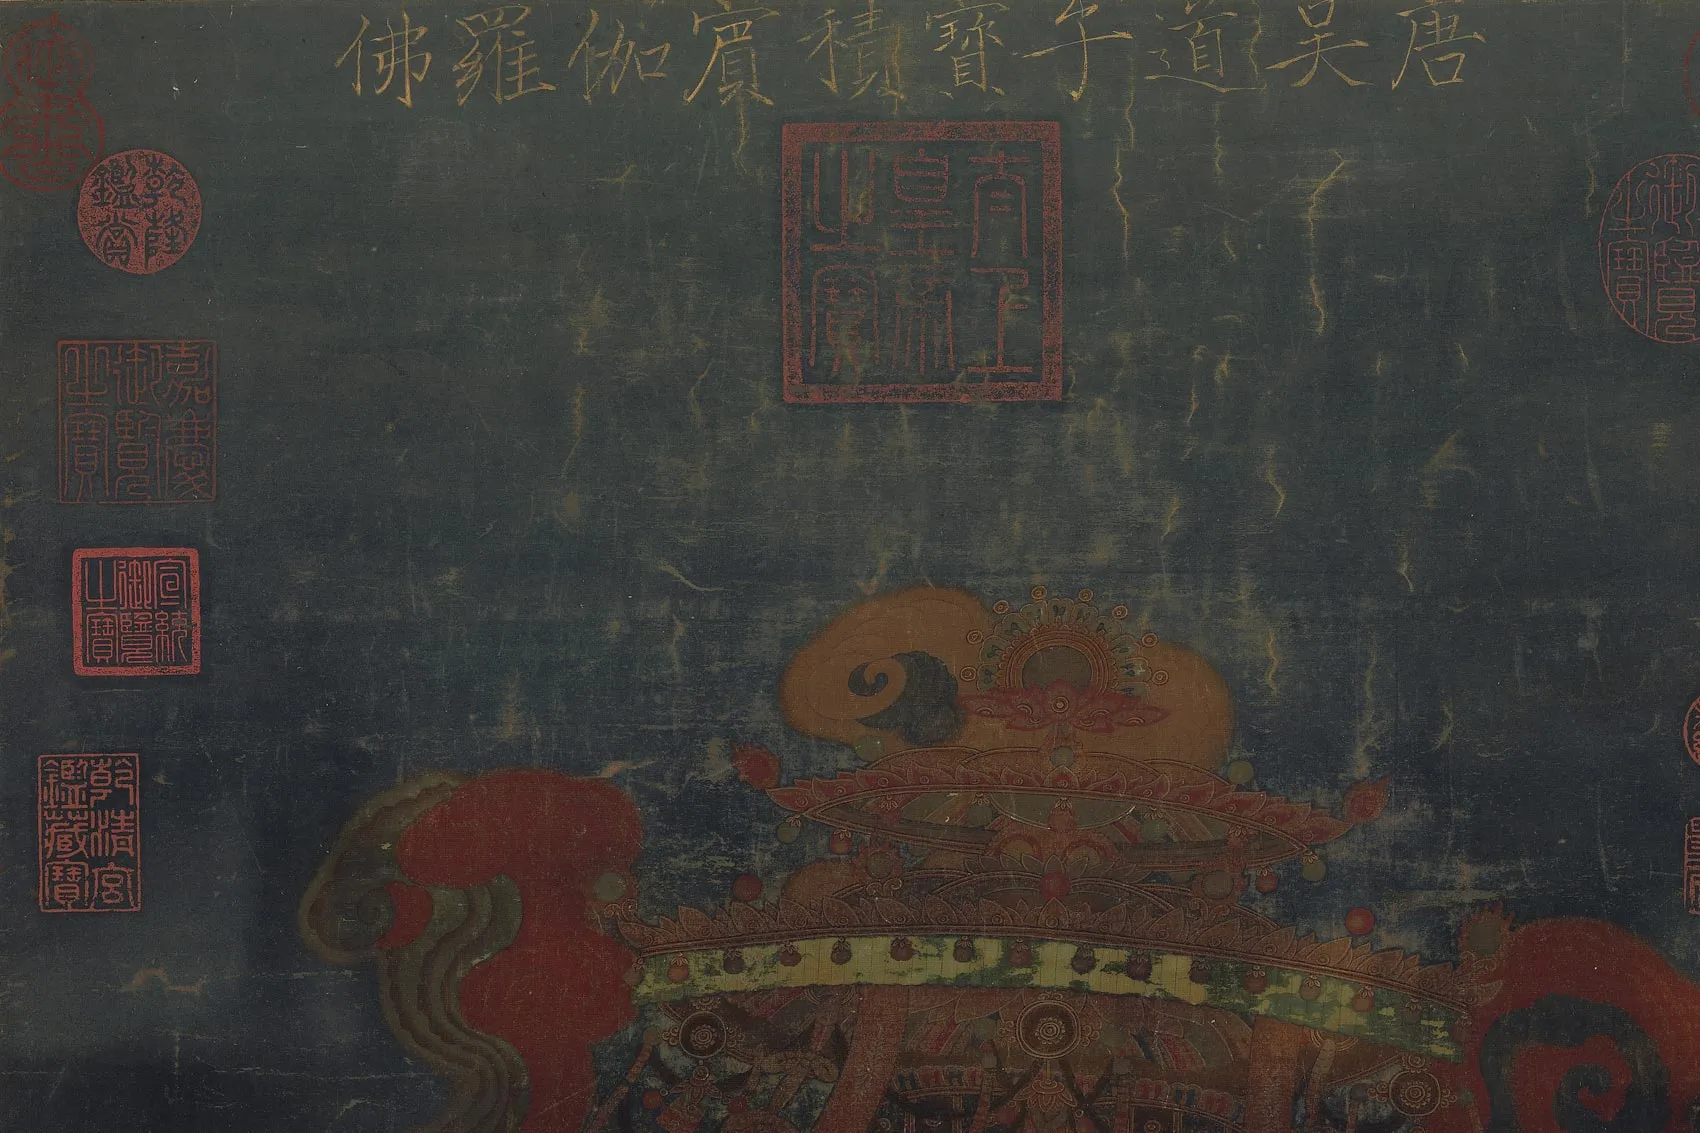 唐吳道子寶積賓伽羅佛
太上皇帝之寶
御覽之寶
乾隆鑑賞
嘉慶御覽之寶
宣統御覽之寶
乾清宮鑑藏寶